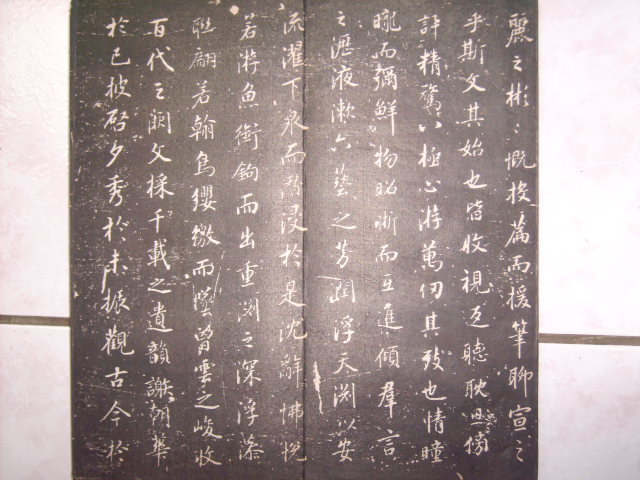 麗之彬〻慨投篇而援筆聊宣之
乎斯文其始也皆收視返聽耽思傍
訊精騖八極心游萬仞其致也情曈
曨而彌鮮物昭晰而互進傾羣言
之瀝液漱六藝之芳潤浮天渕以安
流濯下泉而潛浸於是沈辭怫悅
若游魚銜鉤而出重渕之深浮藻
聯翩若翰鳥纓繳而墜曾雲之峻收
百代之闕文採千載之遺韻謝朝華
於已披啓夕秀於未振觀古今於